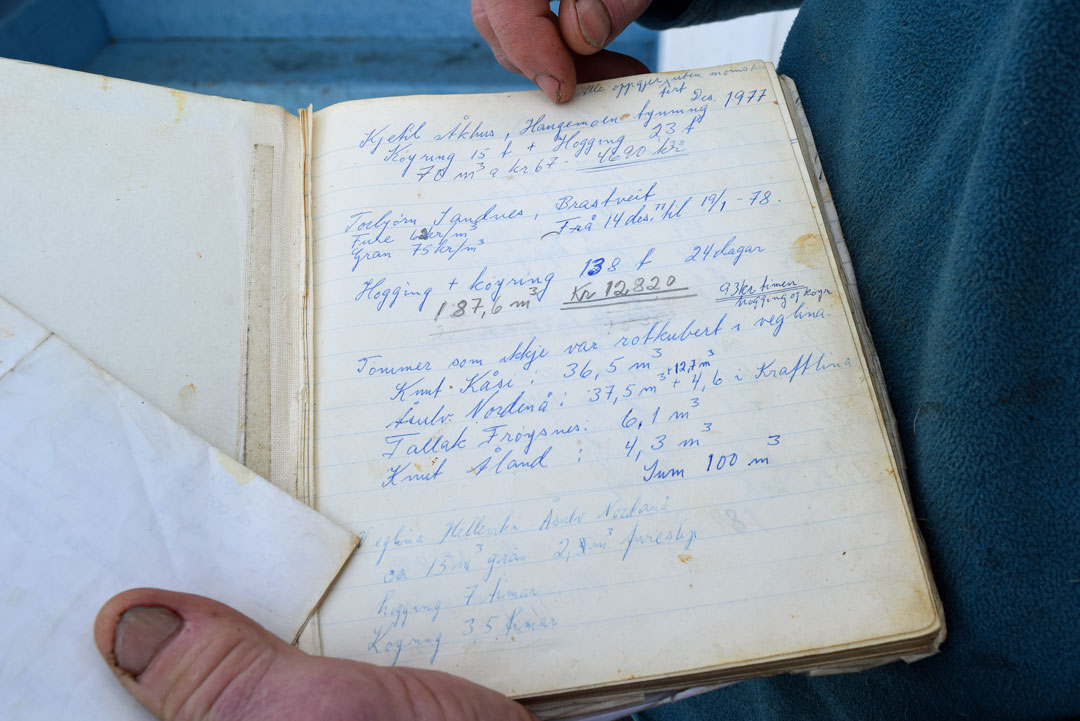 alle oppgjer uten moms
ført
Kjetil Åkhus, Haugemoen tynning Des. 1977
Køyring 15 t + Hogging 23 t
70 m³ a kr 67.- 4690 kr
Torbjørn Sandnes, Brastveit
Fure 62kr/m³ Frå 14 des. 77 til 19/1 - 78.
Gran 75kr/m³
Hogging + køyring 138 t 24 dagar
187,6 m³ Kr 12820 93kr timen
hogging og køyr
Tømmer som ikkje var rotkubert i veglina.
Knut Kåsi: 36,5 m³ + 12,7 m³
Åsulv Nordenå: 37,5 m³ + 4,6 i Kraftlina
Tallak Frøysnes: 6,1 m³
Knut Åland : 4,3 m³
Sum 100 m³
Veglina Åsulv Nordenå
ca 15 m³ gran 2, m³ 8
hogging 7 timar
Køyring 3,5 timar